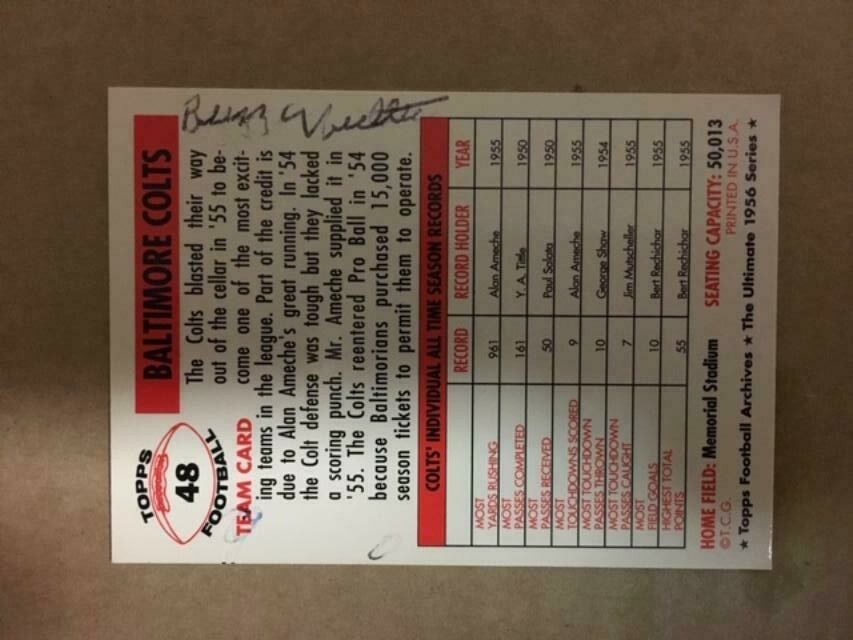 TOPPS
48
FOOTBALL
BALTIMORE COLTS
TEAM CARD
The Colts blasted their way
out of the cellar in '55 to be-
come one of the most excit-
ing teams in the league. Part of the credit is
due to Alan Ameche's great running. In '54
the Colt defense was tough but they lacked
a scoring punch. Mr. Ameche supplied it in
'55. The Colts reentered Pro Ball in '54
because Baltimorians purchased 15,000
season tickets to permit them to operate.
COLTS' INDIVIDUAL ALL TIME SEASON RECORDS
RECORD RECORD HOLDER YEAR
MOST
YARDS RUSHING 961 Alan Ameche 1955
MOST
PASSES COMPLETED 161 Y. A. Tittle 1950
MOST
PASSES RECEIVED 50 Paul Salata 1950
MOST
TOUCHDOWNS SCORED 9 Alan Ameche 1955
MOST TOUCHDOWN
PASSES THROWN 10 George Shaw 1954
MOST TOUCHDOWN
PASSES CAUGHT 7 Jim Mutscheller 1955
MOST
FIELD GOALS 10 Bert Rechichar 1955
HIGHEST TOTAL
POINTS 55 Bert Rechichar 1955
HOME FIELD: Memorial Stadium SEATING CAPACITY: 50,013
© T.C.G. PRINTED IN U.S.A.
★ Topps Football Archives ★ The Ultimate 1956 Series ★